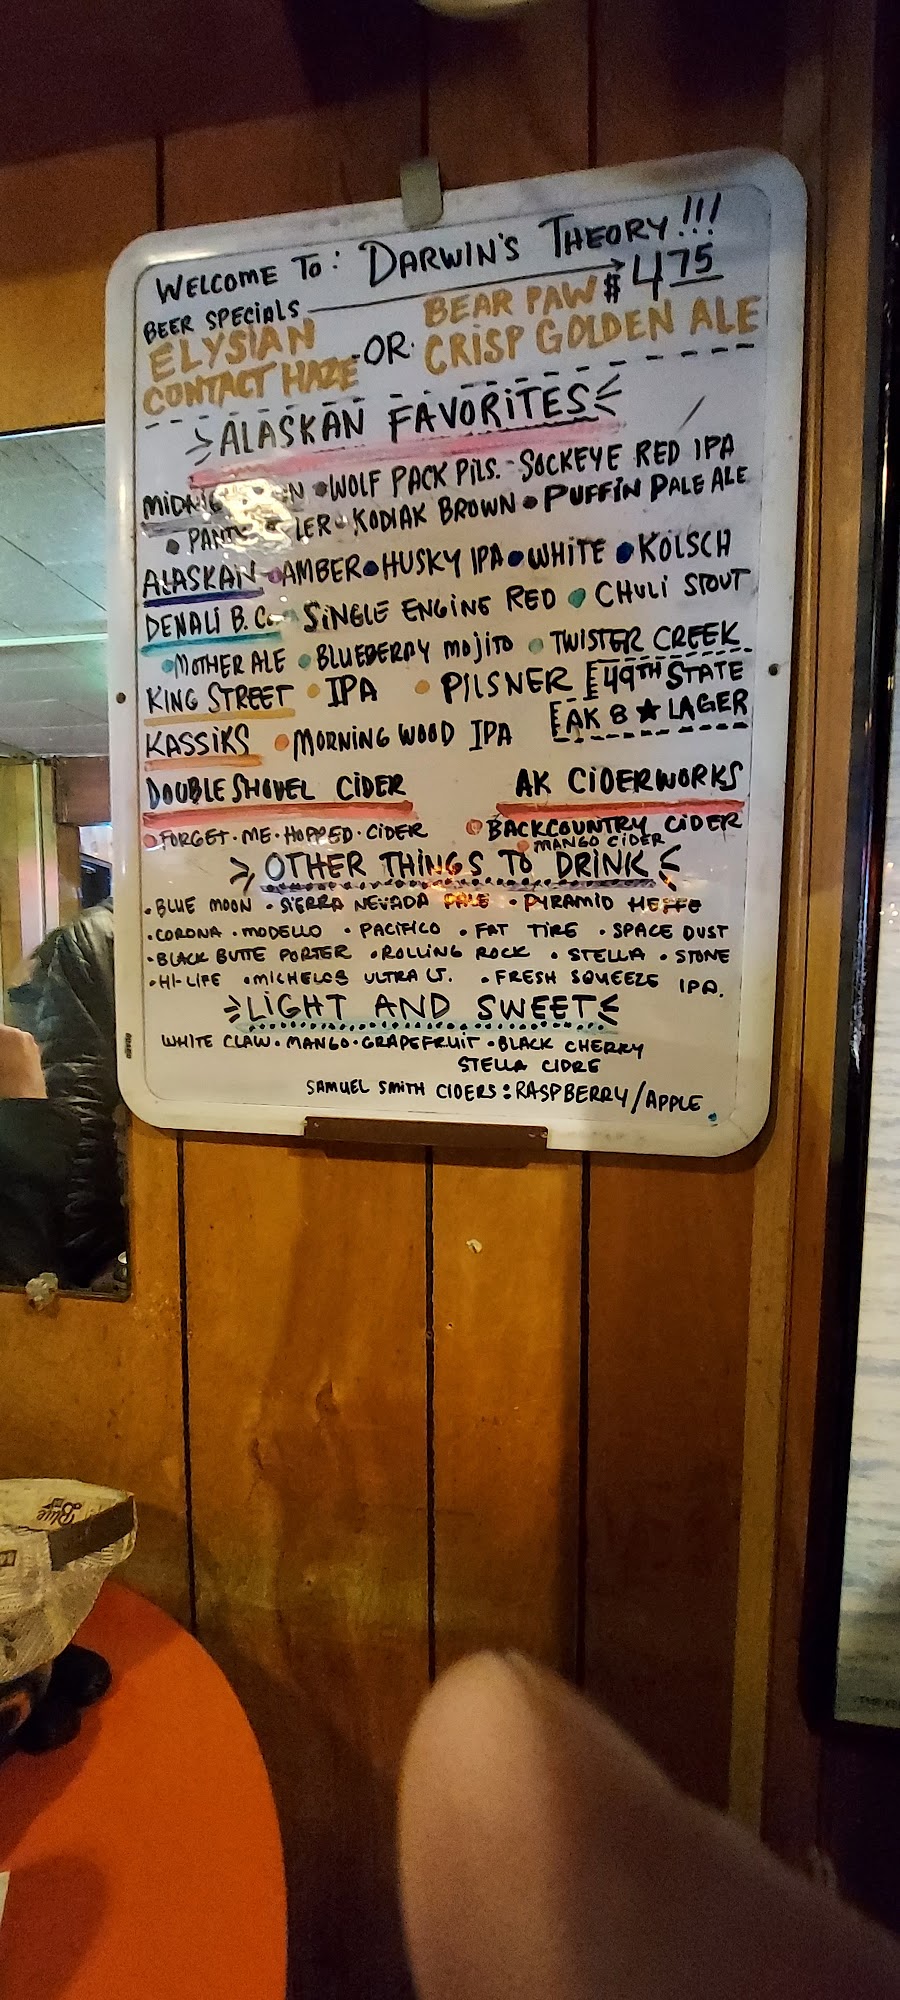 WELCOME TO: DARWIN'S THEORY!!!
BEER SPECIALS → $4.75
ELYSIAN CONTACT HAZE -OR- BEAR PAW CRISP GOLDEN ALE
ALASKAN FAVORITES
• WOLF PACK PILS. - SOCKEYE RED IPA
• KODIAK BROWN • PUFFIN PALE ALE
ALASKAN • AMBER • HUSKY IPA • WHITE • KOLSCH
DENALI B. Co. SINGLE ENGINE RED • CHULI STOUT
• MOTHER ALE • BLUEBERRY MOJITO • TWISTER CREEK
KING STREET • IPA • PILSNER
49TH STATE
AK 8 ★ LAGER
KASSIKS • MORNING WOOD IPA
DOUBLE SHOVEL CIDER
• FORGET·ME·HOPPED·CIDER
AK CIDERWORKS
• BACKCOUNTRY CIDER
• MANGO CIDER
OTHER THINGS TO DRINK
• BLUE MOON • SIERRA NEVADA PALE • PYRAMID HEFFE
• CORONA • MODELLO • PACIFICO • FAT TIRE • SPACE DUST
• BLACK BUTTE PORTER • ROLLING ROCK • STELLA • STONE IPA.
• HI-LIFE • MICHELOB ULTRA LT. • FRESH SQUEEZE
LIGHT AND SWEET
WHITE CLAW • MANGO • GRAPEFRUIT • BLACK CHERRY
STELLA CIDRE
SAMUEL SMITH CIDERS: RASPBERRY/APPLE
Blue